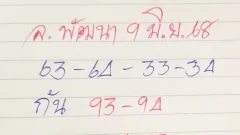 ล. พัฒนา 9 มิ.ย.68
63-64-33-34
กัน 93-94